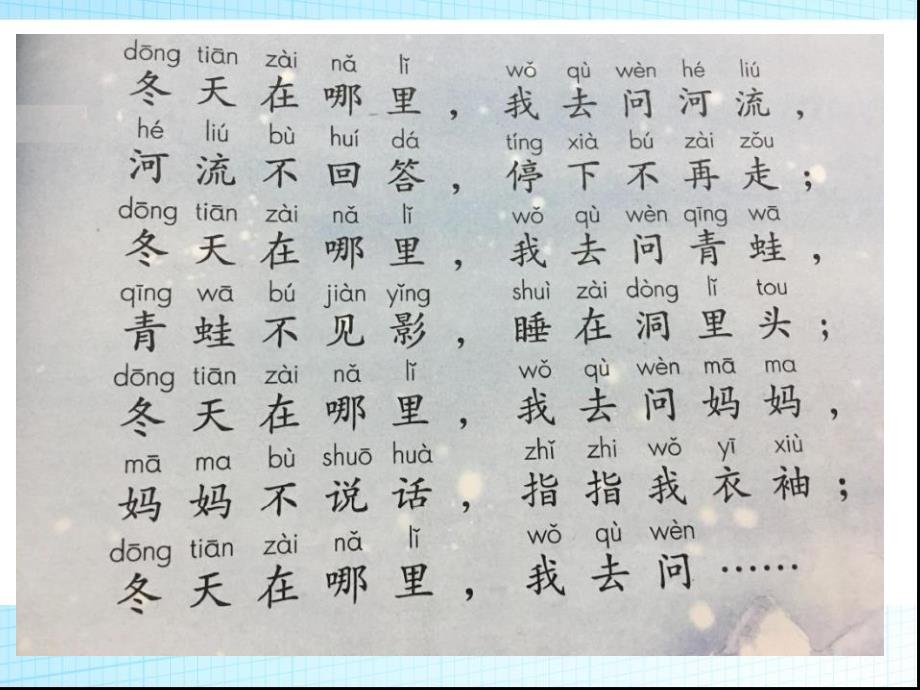 dōng tiān zài nǎ lǐ wǒ qù wèn hé liú
冬天在哪里，我去问河流，
hé liú bù huí dá tíng xià bú zài zǒu
河流不回答，停下不再走；
dōng tiān zài nǎ lǐ wǒ qù wèn qīng wā
冬天在哪里，我去问青蛙，
qīng wā bú jiàn yǐng shuì zài dòng lǐ tou
青蛙不见影，睡在洞里头；
dōng tiān zài nǎ lǐ wǒ qù wèn mā ma
冬天在哪里，我去问妈妈，
mā ma bù shuō huà zhǐ zhi wǒ yī xiù
妈妈不说话，指指我衣袖；
dōng tiān zài nǎ lǐ wǒ qù wèn
冬天在哪里，我去问……